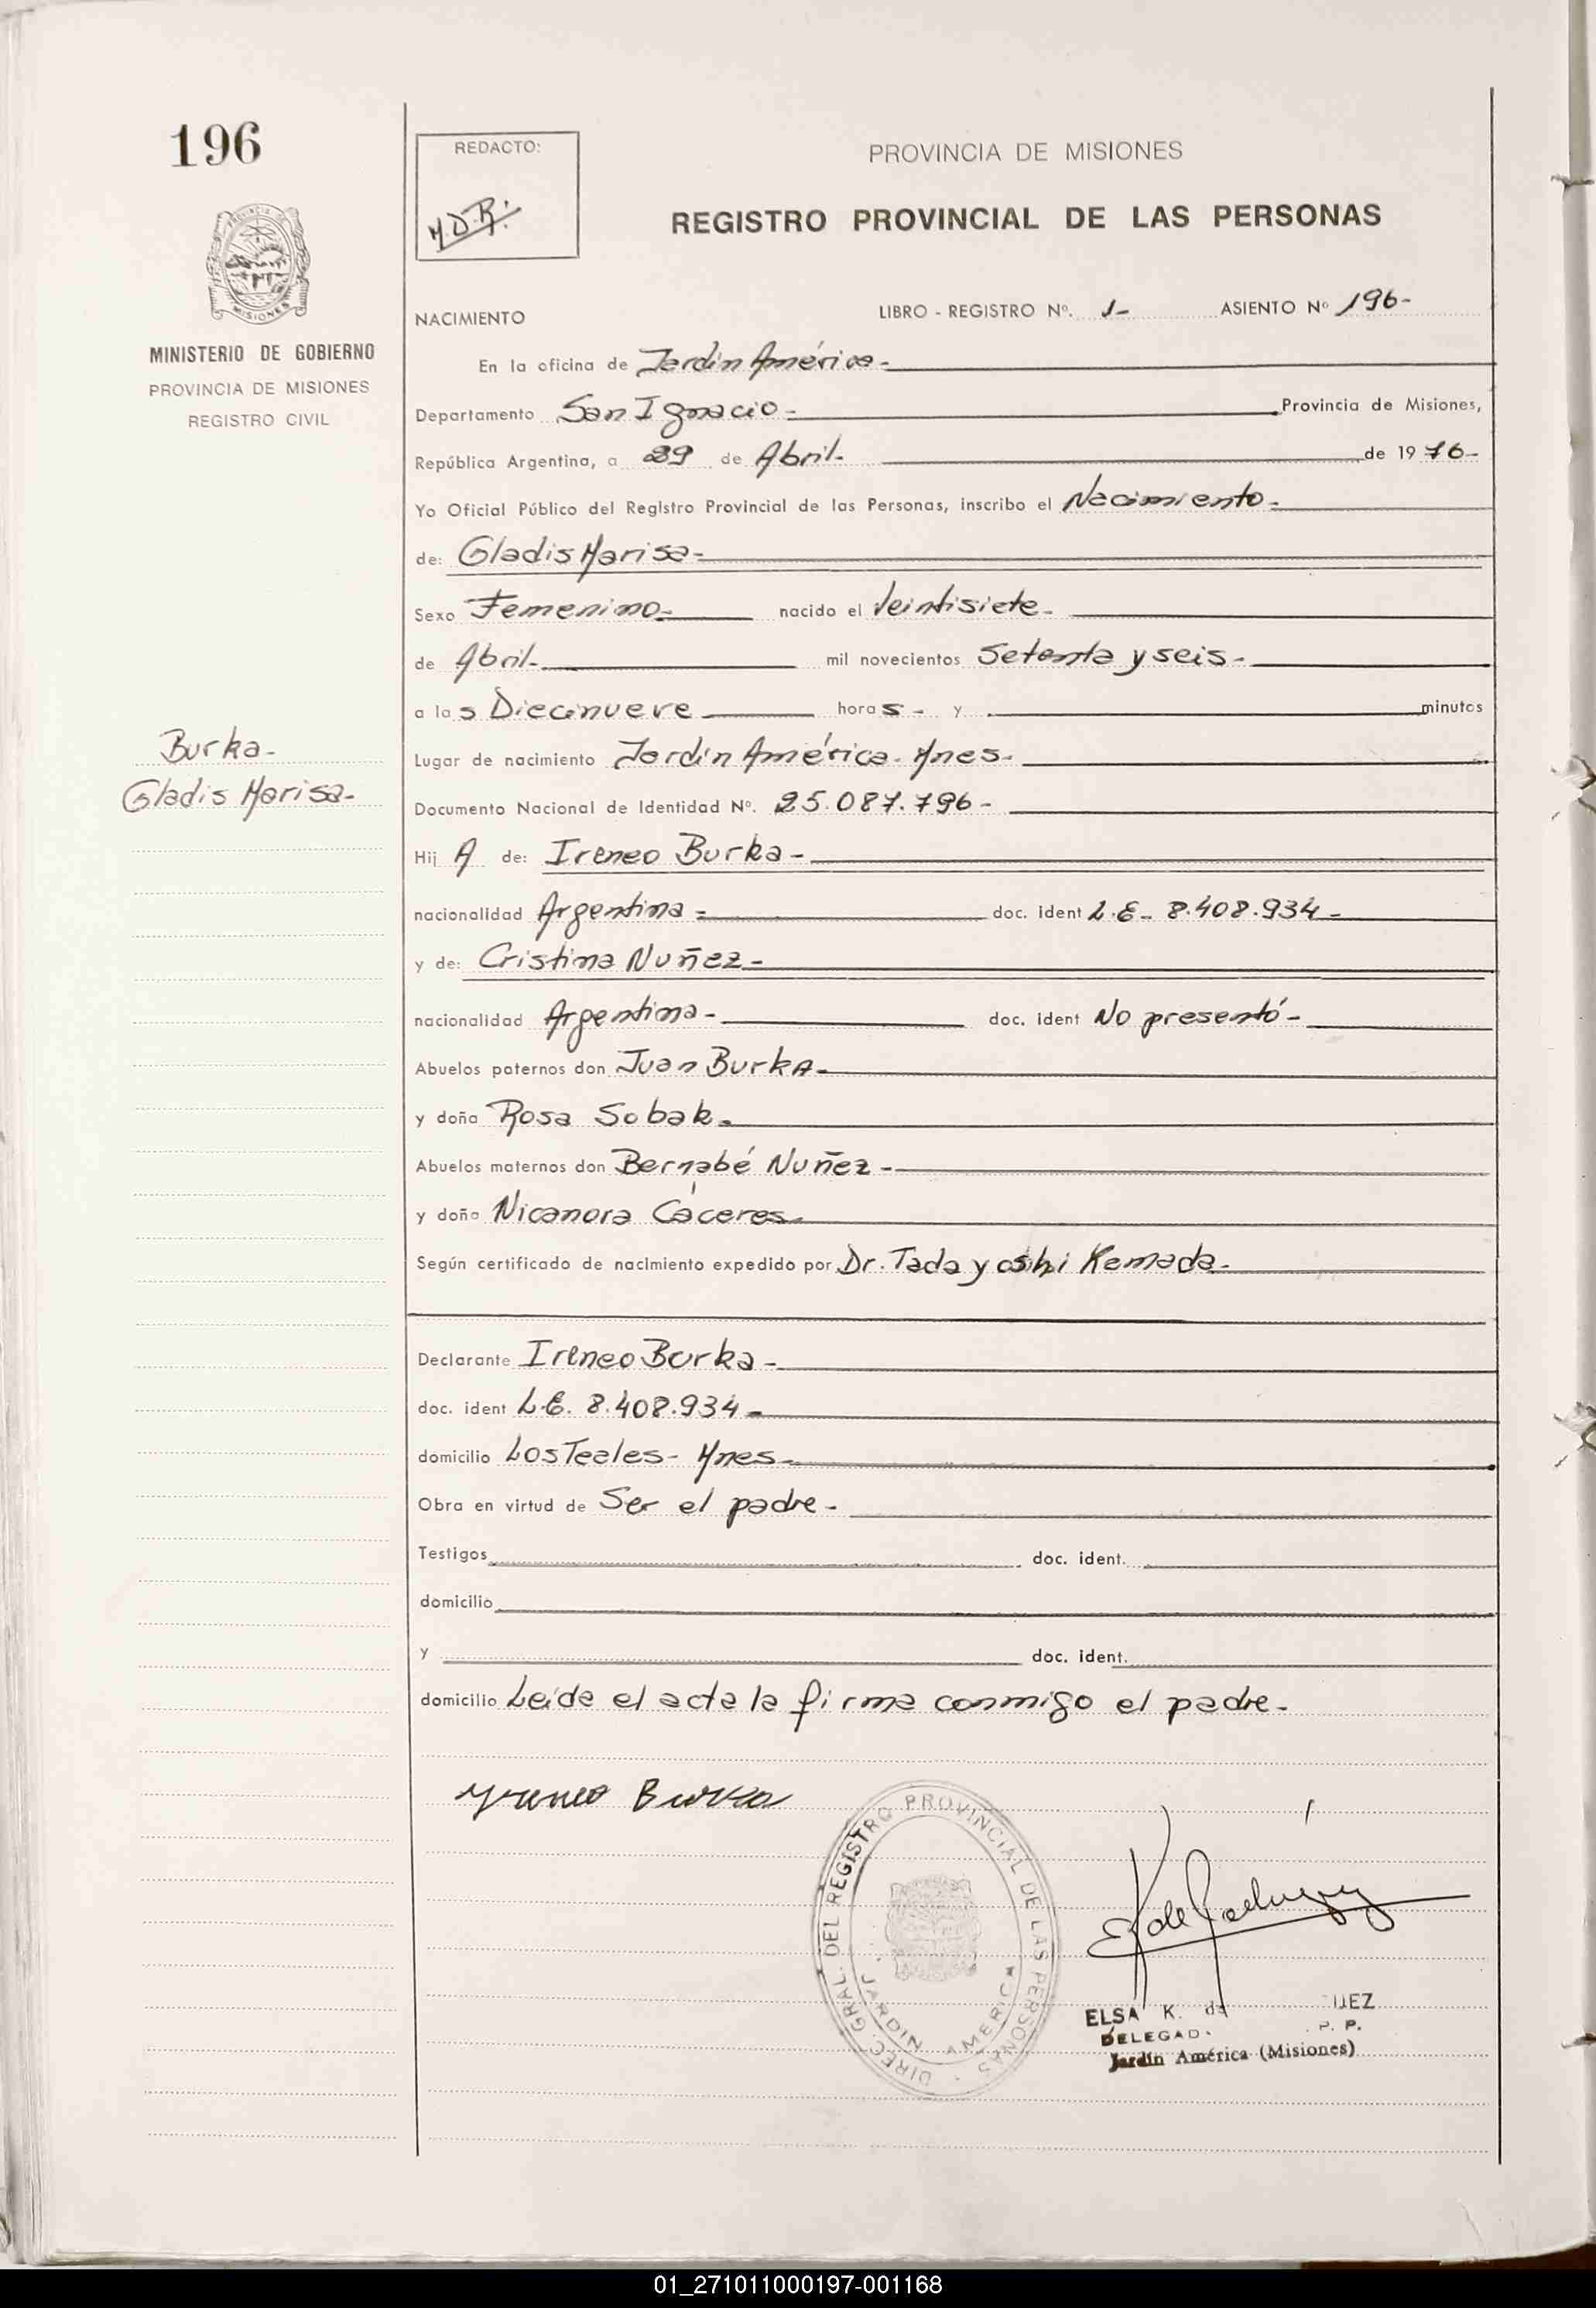 196
REDACTO:
M.D.R.
PROVINCIA DE MISIONES
REGISTRO PROVINCIAL DE LAS PERSONAS
MISIONES
MINISTERIO DE GOBIERNO
PROVINCIA DE MISIONES
REGISTRO CIVIL
NACIMIENTO
LIBRO - REGISTRO Nº. 1- ASIENTO Nº 196-
En la oficina de Jardín América-
Departamento San Ignacio- Provincia de Misiones,
República Argentina, a 29 de Abril- de 1976-
Yo Oficial Público del Registro Provincial de las Personas, inscribo el Nacimiento-
de: Gladis Marisa-
Sexo Femenino- nacido el Veintisiete-
de Abril- mil novecientos Setenta y seis-
a las Diecinueve horas- y minutos
Burka-
Gladis Marisa-
Lugar de nacimiento Jardín América- Mnes-
Documento Nacional de Identidad Nº. 25.087.796-
Hij A de: Ireneo Burka-
nacionalidad Argentina- doc. ident L.E- 8.408.934-
y de: Cristina Nuñez-
nacionalidad Argentina- doc. ident No presentó-
Abuelos paternos don Juan Burka-
y doña Rosa Sobak-
Abuelos maternos don Bernabé Nuñez-
y doña Nicanora Cáceres-
Según certificado de nacimiento expedido por Dr. Tadayoshi Kamada-
Declarante Ireneo Burka-
doc. ident L.E. 8.408.934-
domicilio Los Teales- Mnes-
Obra en virtud de Ser el padre-
Testigos doc. ident.
domicilio
y doc. ident.
domicilio Leída el acta la firma conmigo el padre-
Yreneo Burka
DIREC. GRAL. DEL REGISTRO PROVINCIAL DE LAS PERSONAS
JARDIN AMERICA
ELSA K. de UEZ
DELEGAD. P. P.
Jardín América (Misiones)
01_271011000197-001168